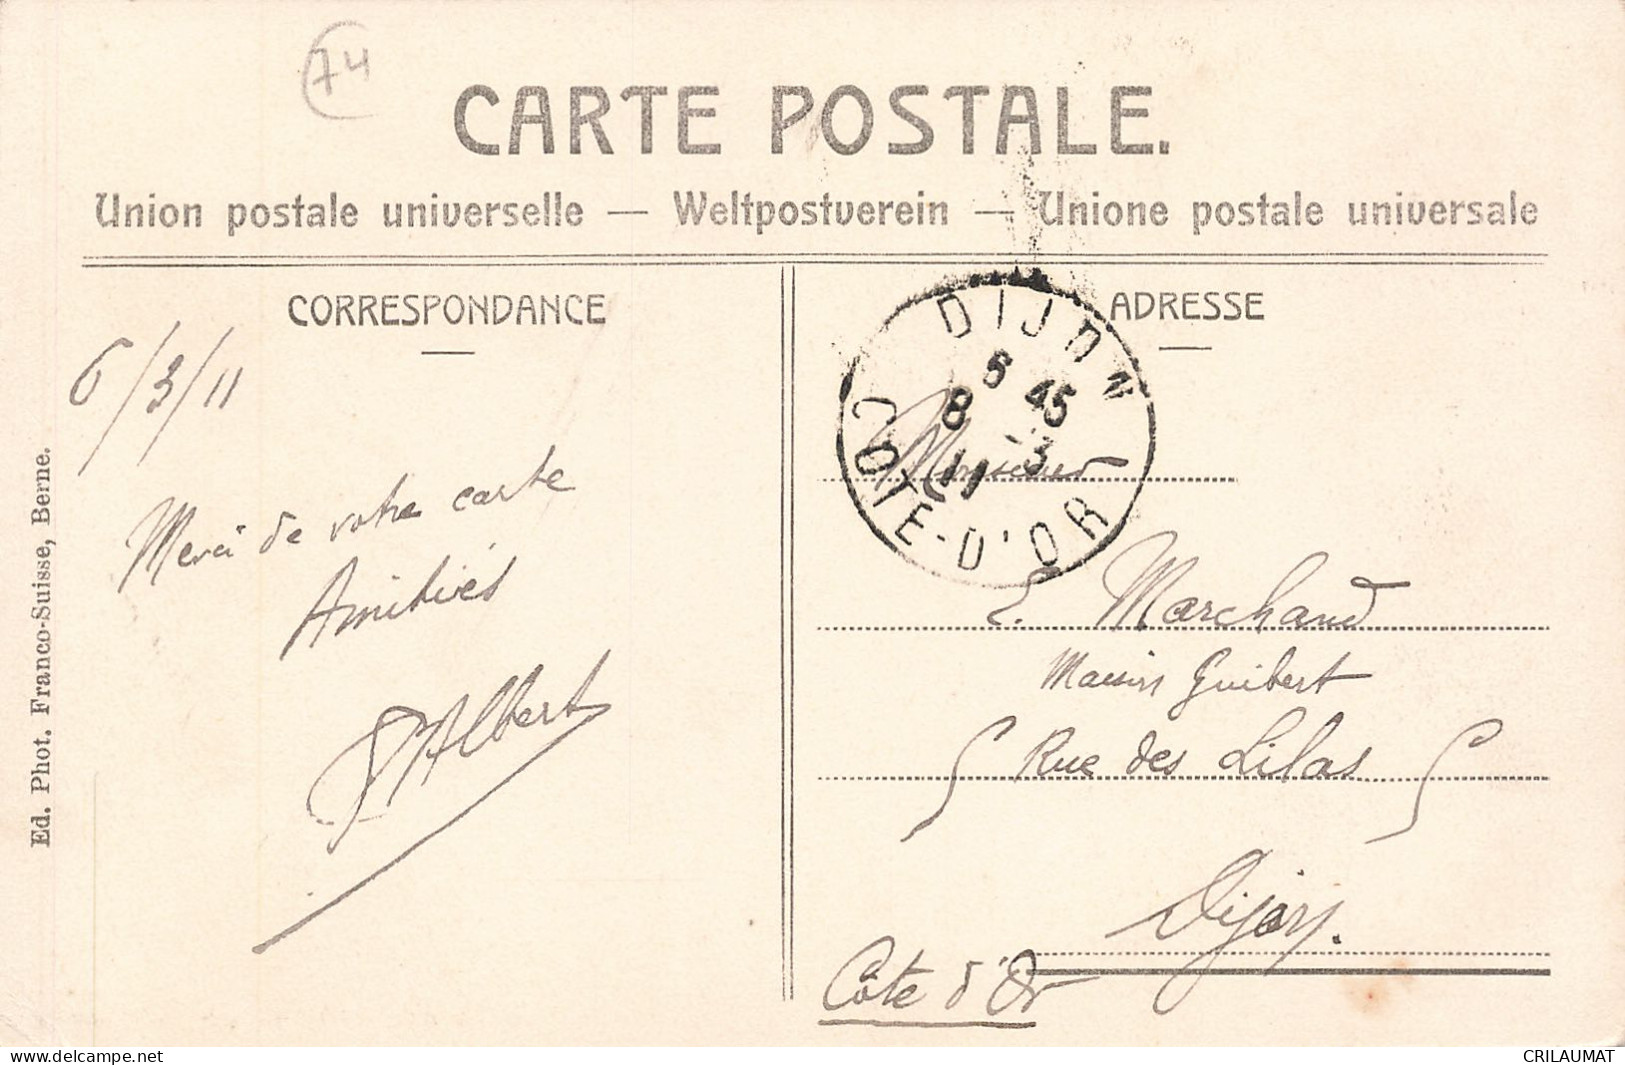 74
CARTE POSTALE.
Union postale universelle — Weltpostverein — Unione postale universale
CORRESPONDANCE
6/3/11
Merci de votre carte
Amitiés
Albert
Ed. Phot. Franco-Suisse, Berne.
ADRESSE
DIJON
6 45
8 -3
11
COTE-D'OR
Monsieur
E. Marchand
Maison Guibert
Rue des Lilas
Dijon.
Côte d'Or
delcampe.net
CRILAUMAT